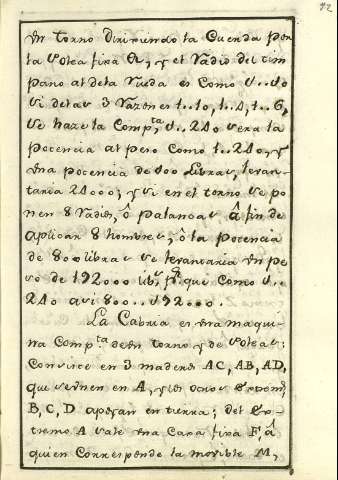 72
un torno Diriviendo la Cuerda por
la Polea fixa Q, y el Radio del tim
pano al dela Rueda es Como 1..10
si delas 3 Razones 1..10, 1..4, 1..6,
se haze la Comp.ta 1..240 sera la
Potencia al peso Como 1..240, y
una potencia de 100 Libras, levan-
taria 24000; y si en el torno se po
nen 8 Radios, ô palancas â fin de
aplicar 8 hombres, ô la potencia
de 800 libras se levantaria un pe
so de 192000 lib.s p.r que Como 1..
240 asi 800..192000.
La Cabria es una maqui
na Comp.ta de un torno y de Poleas:
Consiste en 3 maderos AC, AB, AD,
que se unen en A, y los otros Extrem.s
B, C, D apoyan en tierra; del Ex-
tremo A sale una Caxa fixa F, â
quien Corresponde la movible M,